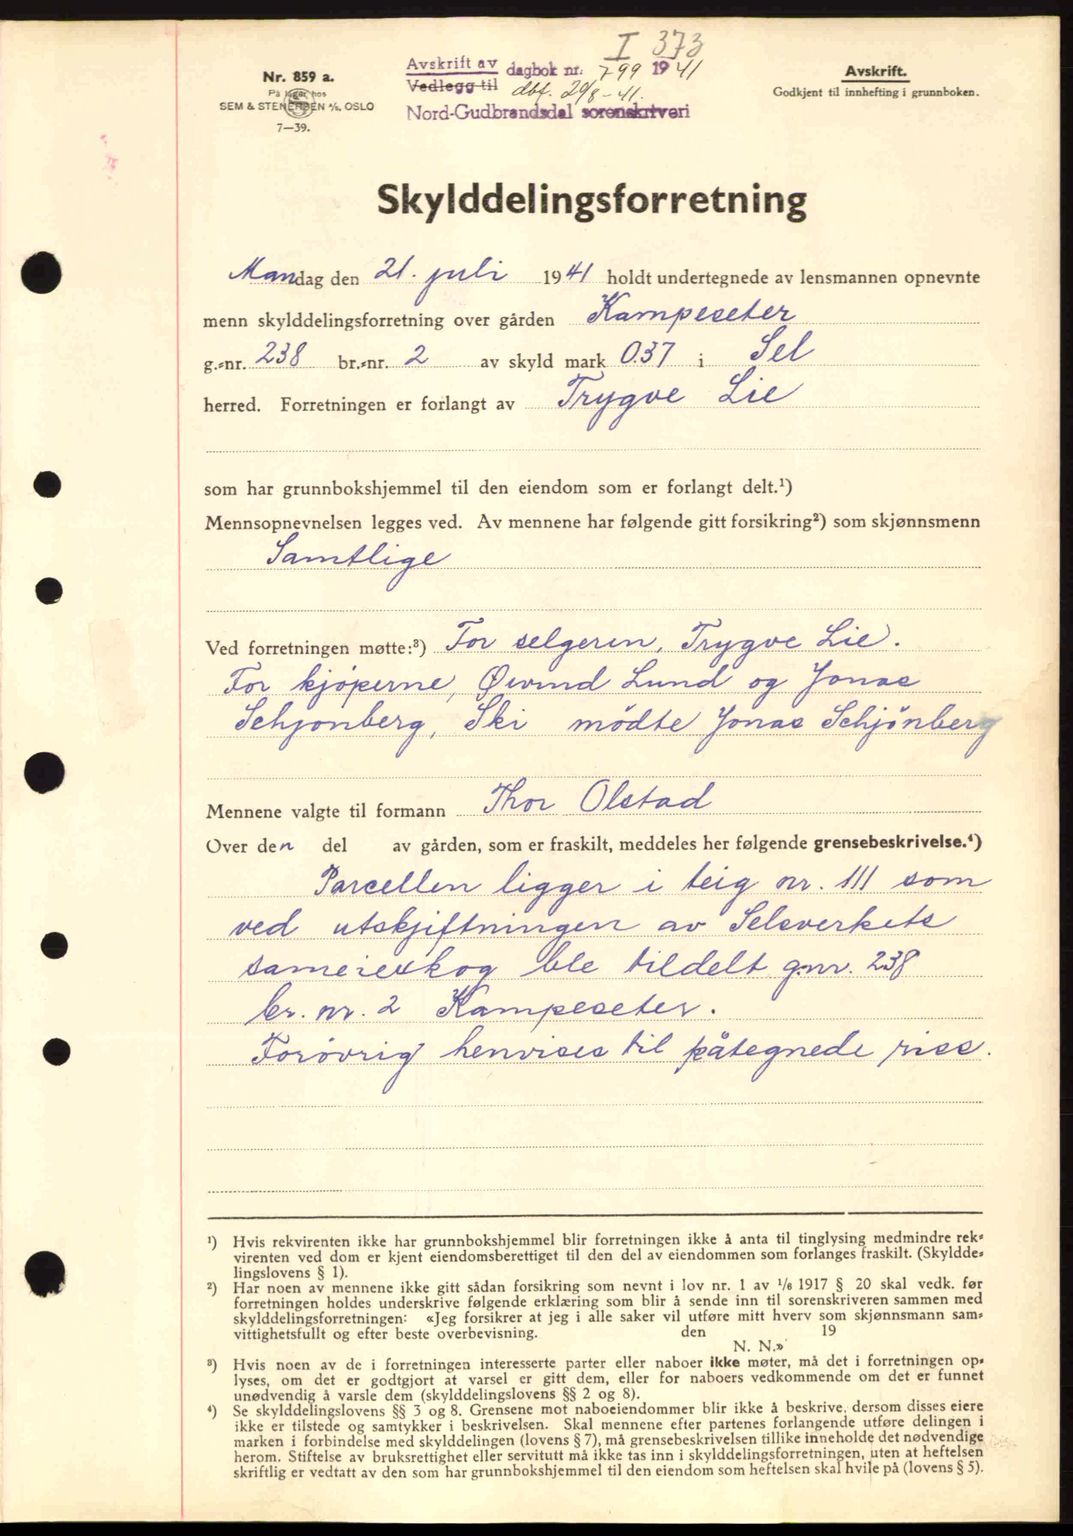 I 373
Nr. 859 a.
På lager hos
SEM & STENERSEN A/S, OSLO
7—39.
Avskrift av dagbok nr. 799 1941
Vedlegg til dbf. 29/8-41.
Nord-Gudbrandsdal sorenskriveri
Avskrift.
Godkjent til innhefting i grunnboken.
Skylddelingsforretning
Mandag den 21. juli 1941 holdt undertegnede av lensmannen opnevnte
menn skylddelingsforretning over gården Kampeseter
g.-nr. 238 br.-nr. 2 av skyld mark 0.37 i Sel
herred. Forretningen er forlangt av Trygve Lie
som har grunnbokshjemmel til den eiendom som er forlangt delt.¹)
Mennsopnevnelsen legges ved. Av mennene har følgende gitt forsikring²) som skjønnsmenn
Samtlige
Ved forretningen møtte:³) For selgeren, Trygve Lie.
For kjøperne, Øivind Lund og Jonas
Schjönberg, Ski mödte Jonas Schjönberg
Mennene valgte til formann Thor Olstad
Over den del av gården, som er fraskilt, meddeles her følgende grensebeskrivelse.⁴)
Parcellen ligger i teig nr. 111 som
ved utskjiftningen av Selsverkets
sameieskog ble tildelt g.nr. 238
br. nr. 2 Kampeseter.
Forövrig henvises til påtegnede riss.
¹) Hvis rekvirenten ikke har grunnbokshjemmel blir forretningen ikke å anta til tinglysing medmindre rek-
virenten ved dom er kjent eiendomsberettiget til den del av eiendommen som forlanges fraskilt. (Skyldde-
lingslovens § 1).
²) Har noen av mennene ikke gitt sådan forsikring som nevnt i lov nr. 1 av 1/6 1917 § 20 skal vedk. før
forretningen holdes underskrive følgende erklæring som blir å sende inn til sorenskriveren sammen med
skylddelingsforretningen: «Jeg forsikrer at jeg i alle saker vil utføre mitt hverv som skjønnsmann sam-
vittighetsfullt og efter beste overbevisning. den 19
N. N.»
³) Hvis noen av de i forretningen interesserte parter eller naboer ikke møter, må det i forretningen op-
lyses, om det er godtgjort at varsel er gitt dem, eller for naboers vedkommende om det er funnet
unødvendig å varsle dem (skylddelingslovens §§ 2 og 8).
⁴) Se skylddelingslovens §§ 3 og 8. Grensene mot naboeiendommer blir ikke å beskrive, dersom disses eiere
ikke er tilstede og samtykker i beskrivelsen. Skal mennene efter partenes forlangende utføre delingen i
marken i forbindelse med skylddelingen (lovens § 7), må grensebeskrivelsen tillike inneholde det nødvendige
herom. Stiftelse av bruksrettighet eller servitutt må ikke tas inn i skylddelingsforretningen, uten at heftelsen
skriftlig er vedtatt av den som har grunnbokshjemmel til den eiendom som heftelsen skal hvile på (lovens § 5).